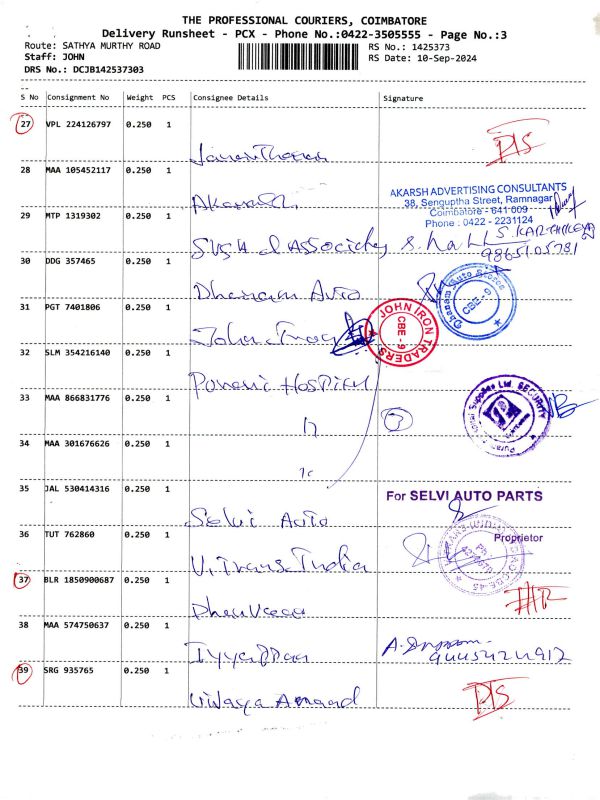 THE PROFESSIONAL COURIERS, COIMBATORE
Delivery Runsheet - PCX - Phone No.:0422-3505555 - Page No.:3
Route: SATHYA MURTHY ROAD RS No.: 1425373
Staff: JOHN RS Date: 10-Sep-2024
DRS No.: DCJB142537303
S No Consignment No Weight PCS Consignee Details Signature
27 VPL 224126797 0.250 1
28 MAA 105452117 0.250 1 Akarsh
AKARSH ADVERTISING CONSULTANTS
38, Senguptha Street, Ramnagar
Coimbatore - 641 009
Phone : 0422 - 2231124
29 MTP 1319302 0.250 1
S. KARTHIKEYAN
9865105781
30 DDG 357465 0.250 1 Dhanam Auto
Dhanam Auto Stores
CBE - 9
31 PGT 7401806 0.250 1 John Iron
JOHN IRON TRADERS
CBE - 9
32 SLM 354216140 0.250 1 Hospital
33 MAA 866831776 0.250 1 11
SECURITY
34 MAA 301676626 0.250 1
35 JAL 530414316 0.250 1 Selvi Auto
For SELVI AUTO PARTS
Proprietor
36 TUT 762860 0.250 1 V. Trans India
37 BLR 1850900687 0.250 1
38 MAA 574750637 0.250 1 Iyyappan
39 SRG 935765 0.250 1 Vijaya Anand